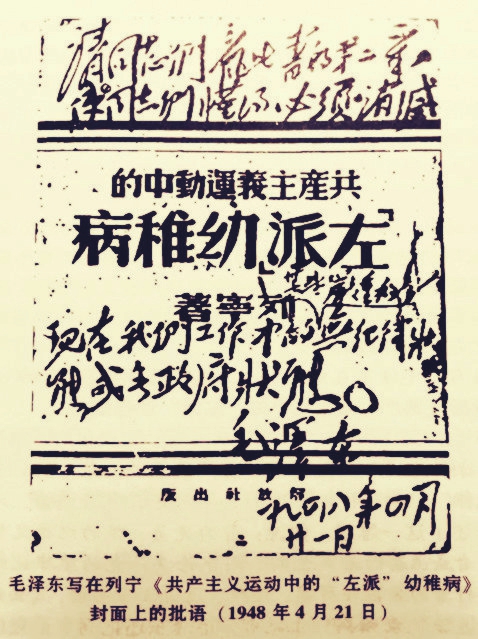 请同志们看此書的第二章，
使同志们懂得，必须消滅
共產主義運動中的
「左派」幼稚病
列寧著
现在我们工作中的無纪律狀
態或無政府狀態。
毛澤东
解放社出版
一九四八年四月
廿一日
毛泽东写在列宁《共产主义运动中的“左派”幼稚病》
封面上的批语（1948年4月21日）